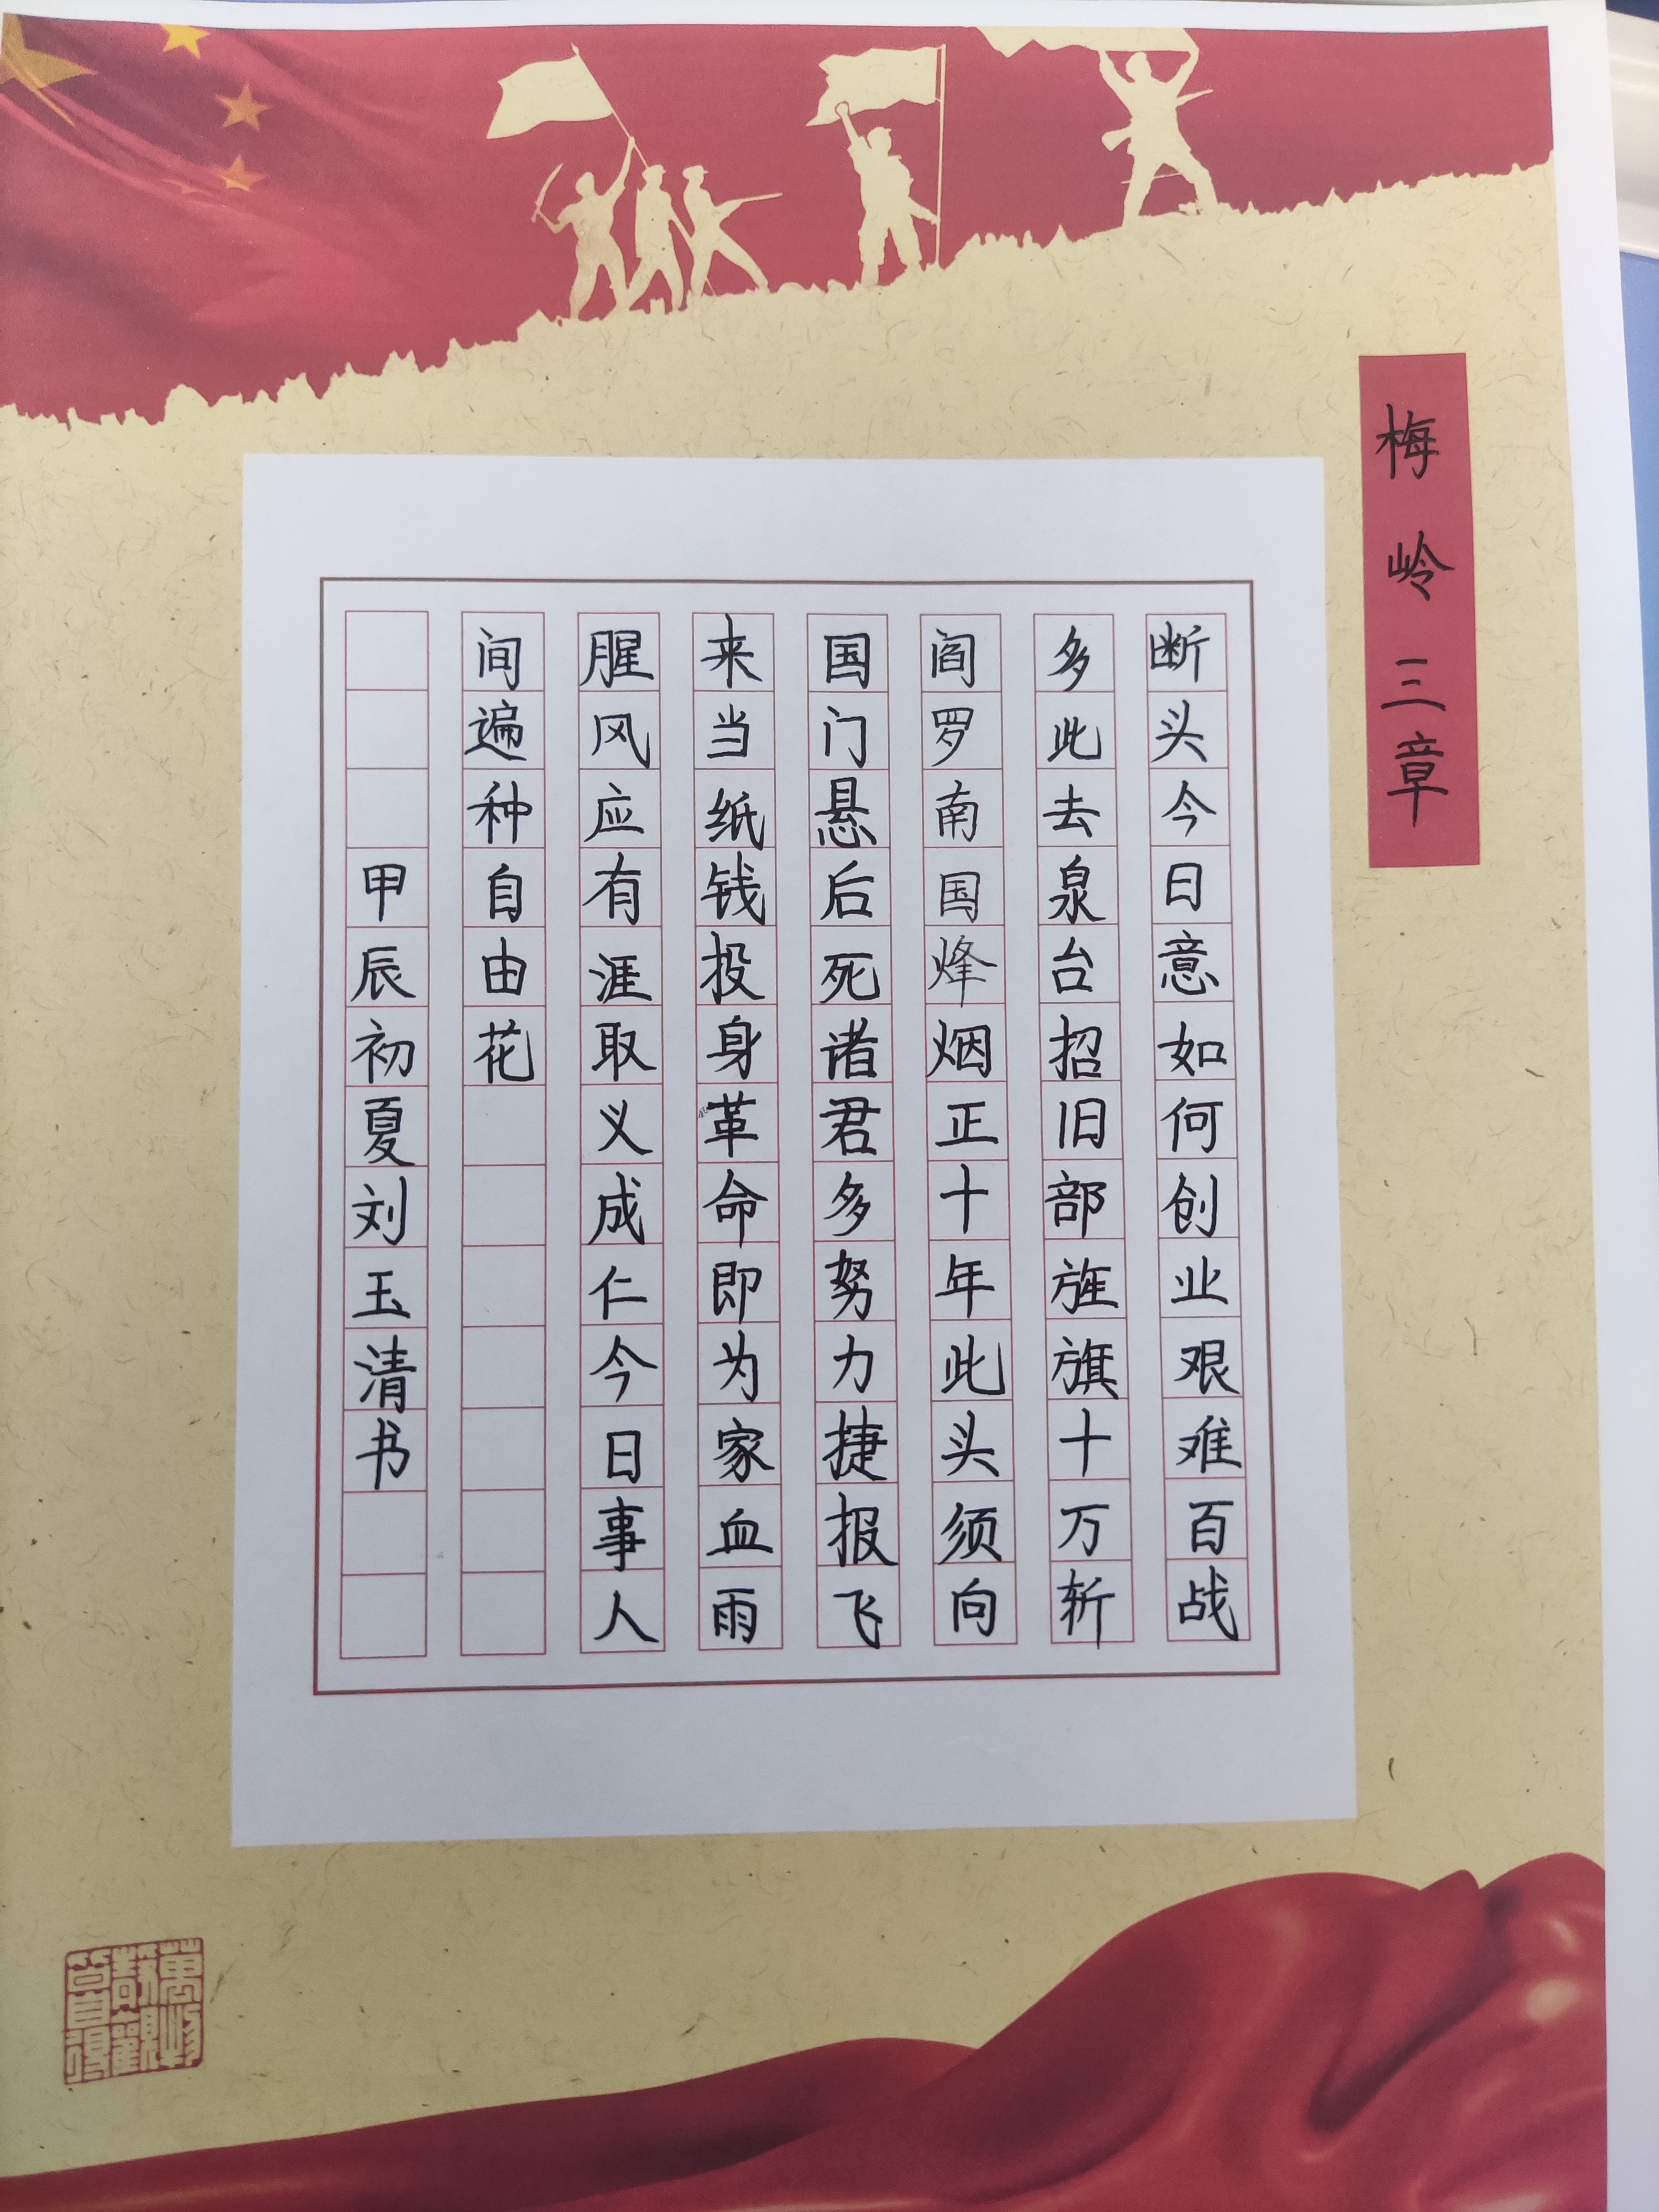 梅岭三章
断头今日意如何创业艰难百战
多此去泉台招旧部旌旗十万斩
阎罗南国烽烟正十年此头须向
国门悬后死诸君多努力捷报飞
来当纸钱投身革命即为家血雨
腥风应有涯取义成仁今日事人
间遍种自由花
甲辰初夏刘玉清书
萬物静觀皆自得